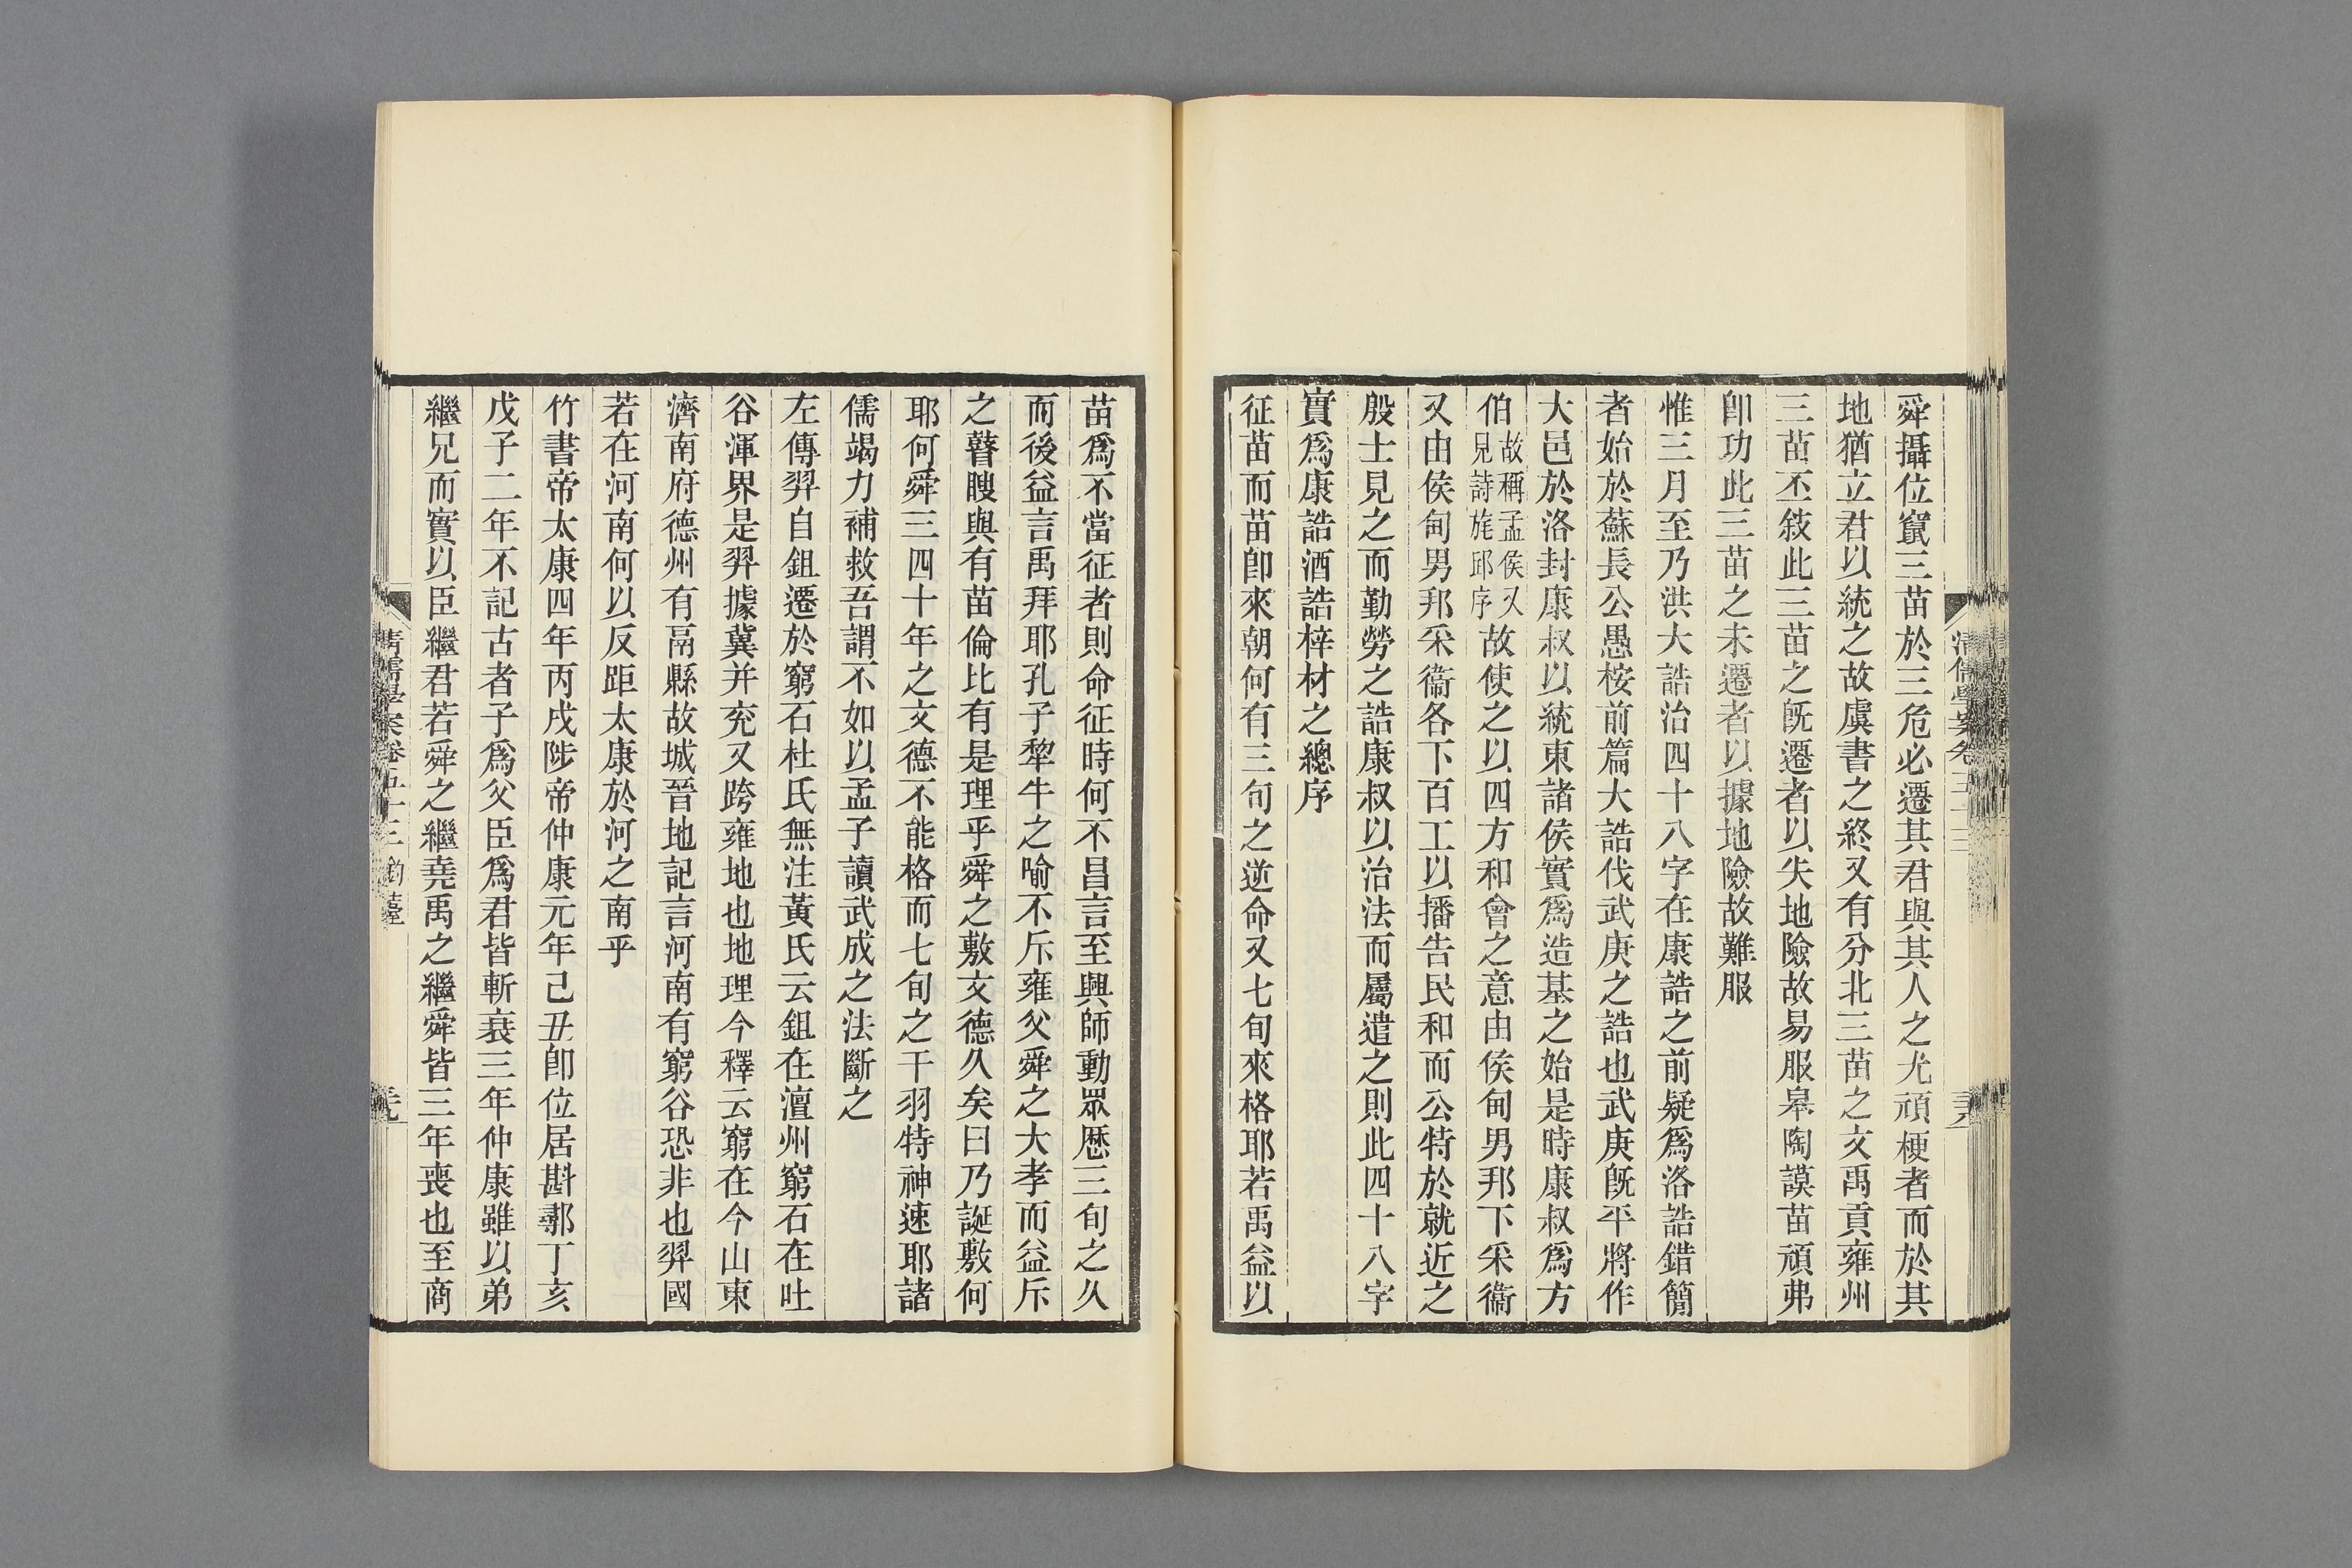 舜攝位竄三苗於三危必遷其君與其人之尤頑梗者而於其
地猶立君以統之故虞書之終又有分北三苗之文禹貢雍州
三苗丕敍此三苗之旣遷者以失地險故易服皋陶謨苗頑弗
卽功此三苗之未遷者以據地險故難服
惟三月至乃洪大誥治四十八字在康誥之前疑爲洛誥錯簡
者始於蘇長公愚桉前篇大誥伐武庚之誥也武庚旣平將作
大邑於洛封康叔以統東諸侯實爲造基之始是時康叔爲方
伯故稱孟侯又見詩旄邱序故使之以四方和會之意由侯甸男邦下采衞
又由侯甸男邦采衞各下百工以播告民和而公特於就近之
殷士見之而勤勞之誥康叔以治法而屬遣之則此四十八字
實爲康誥酒誥梓材之總序
征苗而苗卽來朝何有三旬之逆命又七旬來格耶若禹益以
苗爲不當征者則命征時何不昌言至興師動眾歷三旬之久
而後益言禹拜耶孔子犂牛之喻不斥雍父舜之大孝而益斥
之瞽瞍與有苗倫比有是理乎舜之敷文德久矣曰乃誕敷何
耶何舜三四十年之文德不能格而七旬之干羽特神速耶諸
儒竭力補救吾謂不如以孟子讀武成之法斷之
左傳羿自鉏遷於窮石杜氏無注黃氏云鉏在澶州窮石在吐
谷渾界是羿據冀并兖又跨雍地也地理今釋云窮在今山東
濟南府德州有鬲縣故城晉地記言河南有窮谷恐非也羿國
若在河南何以反距太康於河之南乎
竹書帝太康四年丙戌陟帝仲康元年己丑卽位居斟鄩丁亥
戊子二年不記古者子爲父臣爲君皆斬衰三年仲康雖以弟
繼兄而實以臣繼君若舜之繼堯禹之繼舜皆三年喪也至商
清儒學案卷五十三 鈞臺